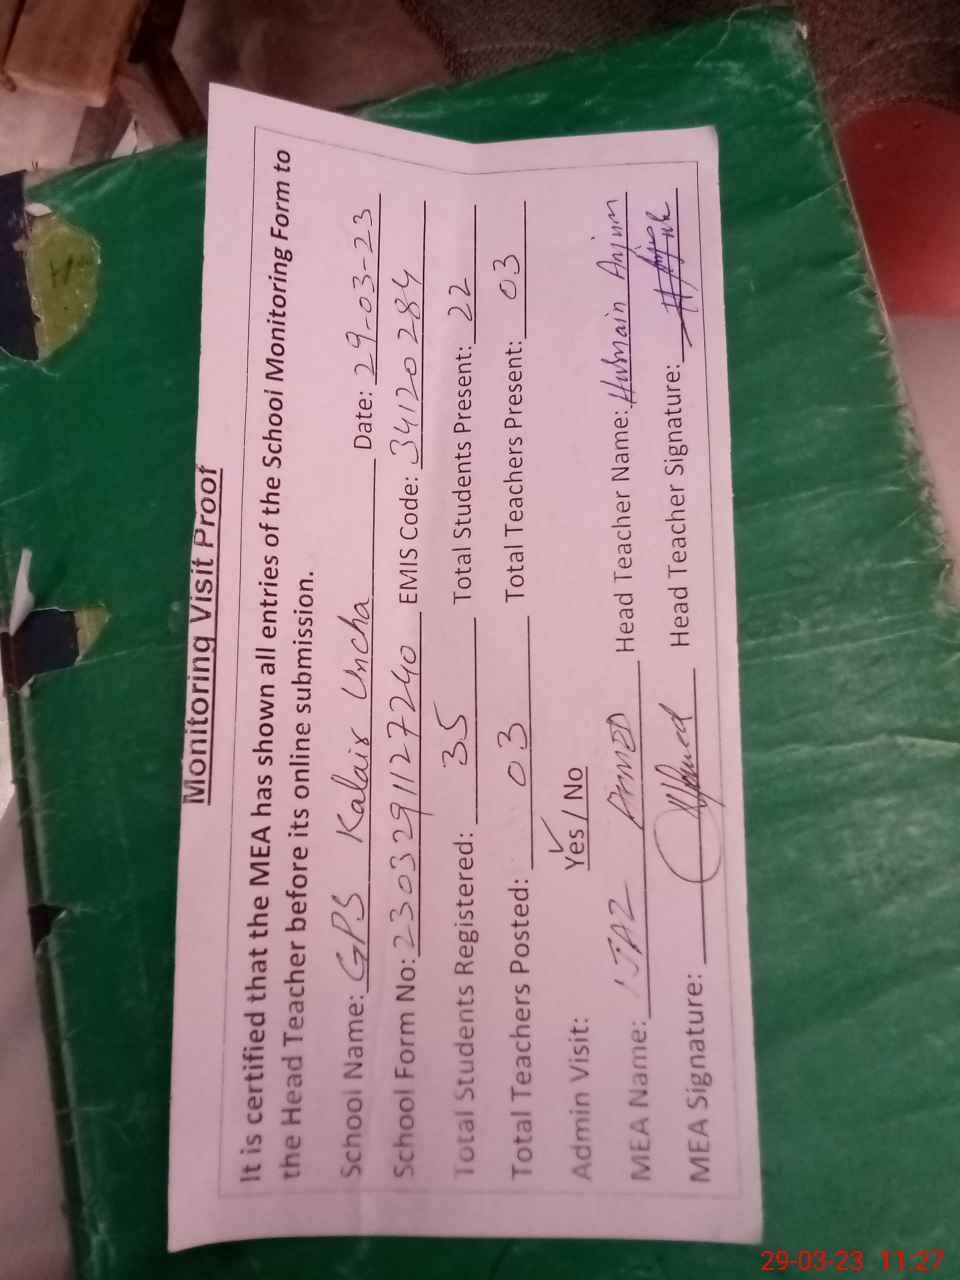 Monitoring Visit Proof
It is certified that the MEA has shown all entries of the School Monitoring Form to
the Head Teacher before its online submission.
School Name: GPS Kalair Uncha Date: 29-03-23
School Form No: 2303291127240 EMIS Code: 34120284
Total Students Registered: 35 Total Students Present: 22
Total Teachers Posted: 03 Total Teachers Present: 03
Admin Visit: Yes / No
MEA Name: IJAZ AHMED Head Teacher Name: Husnain Anjum
MEA Signature: Ahmed Head Teacher Signature:
29-03-23 11:27